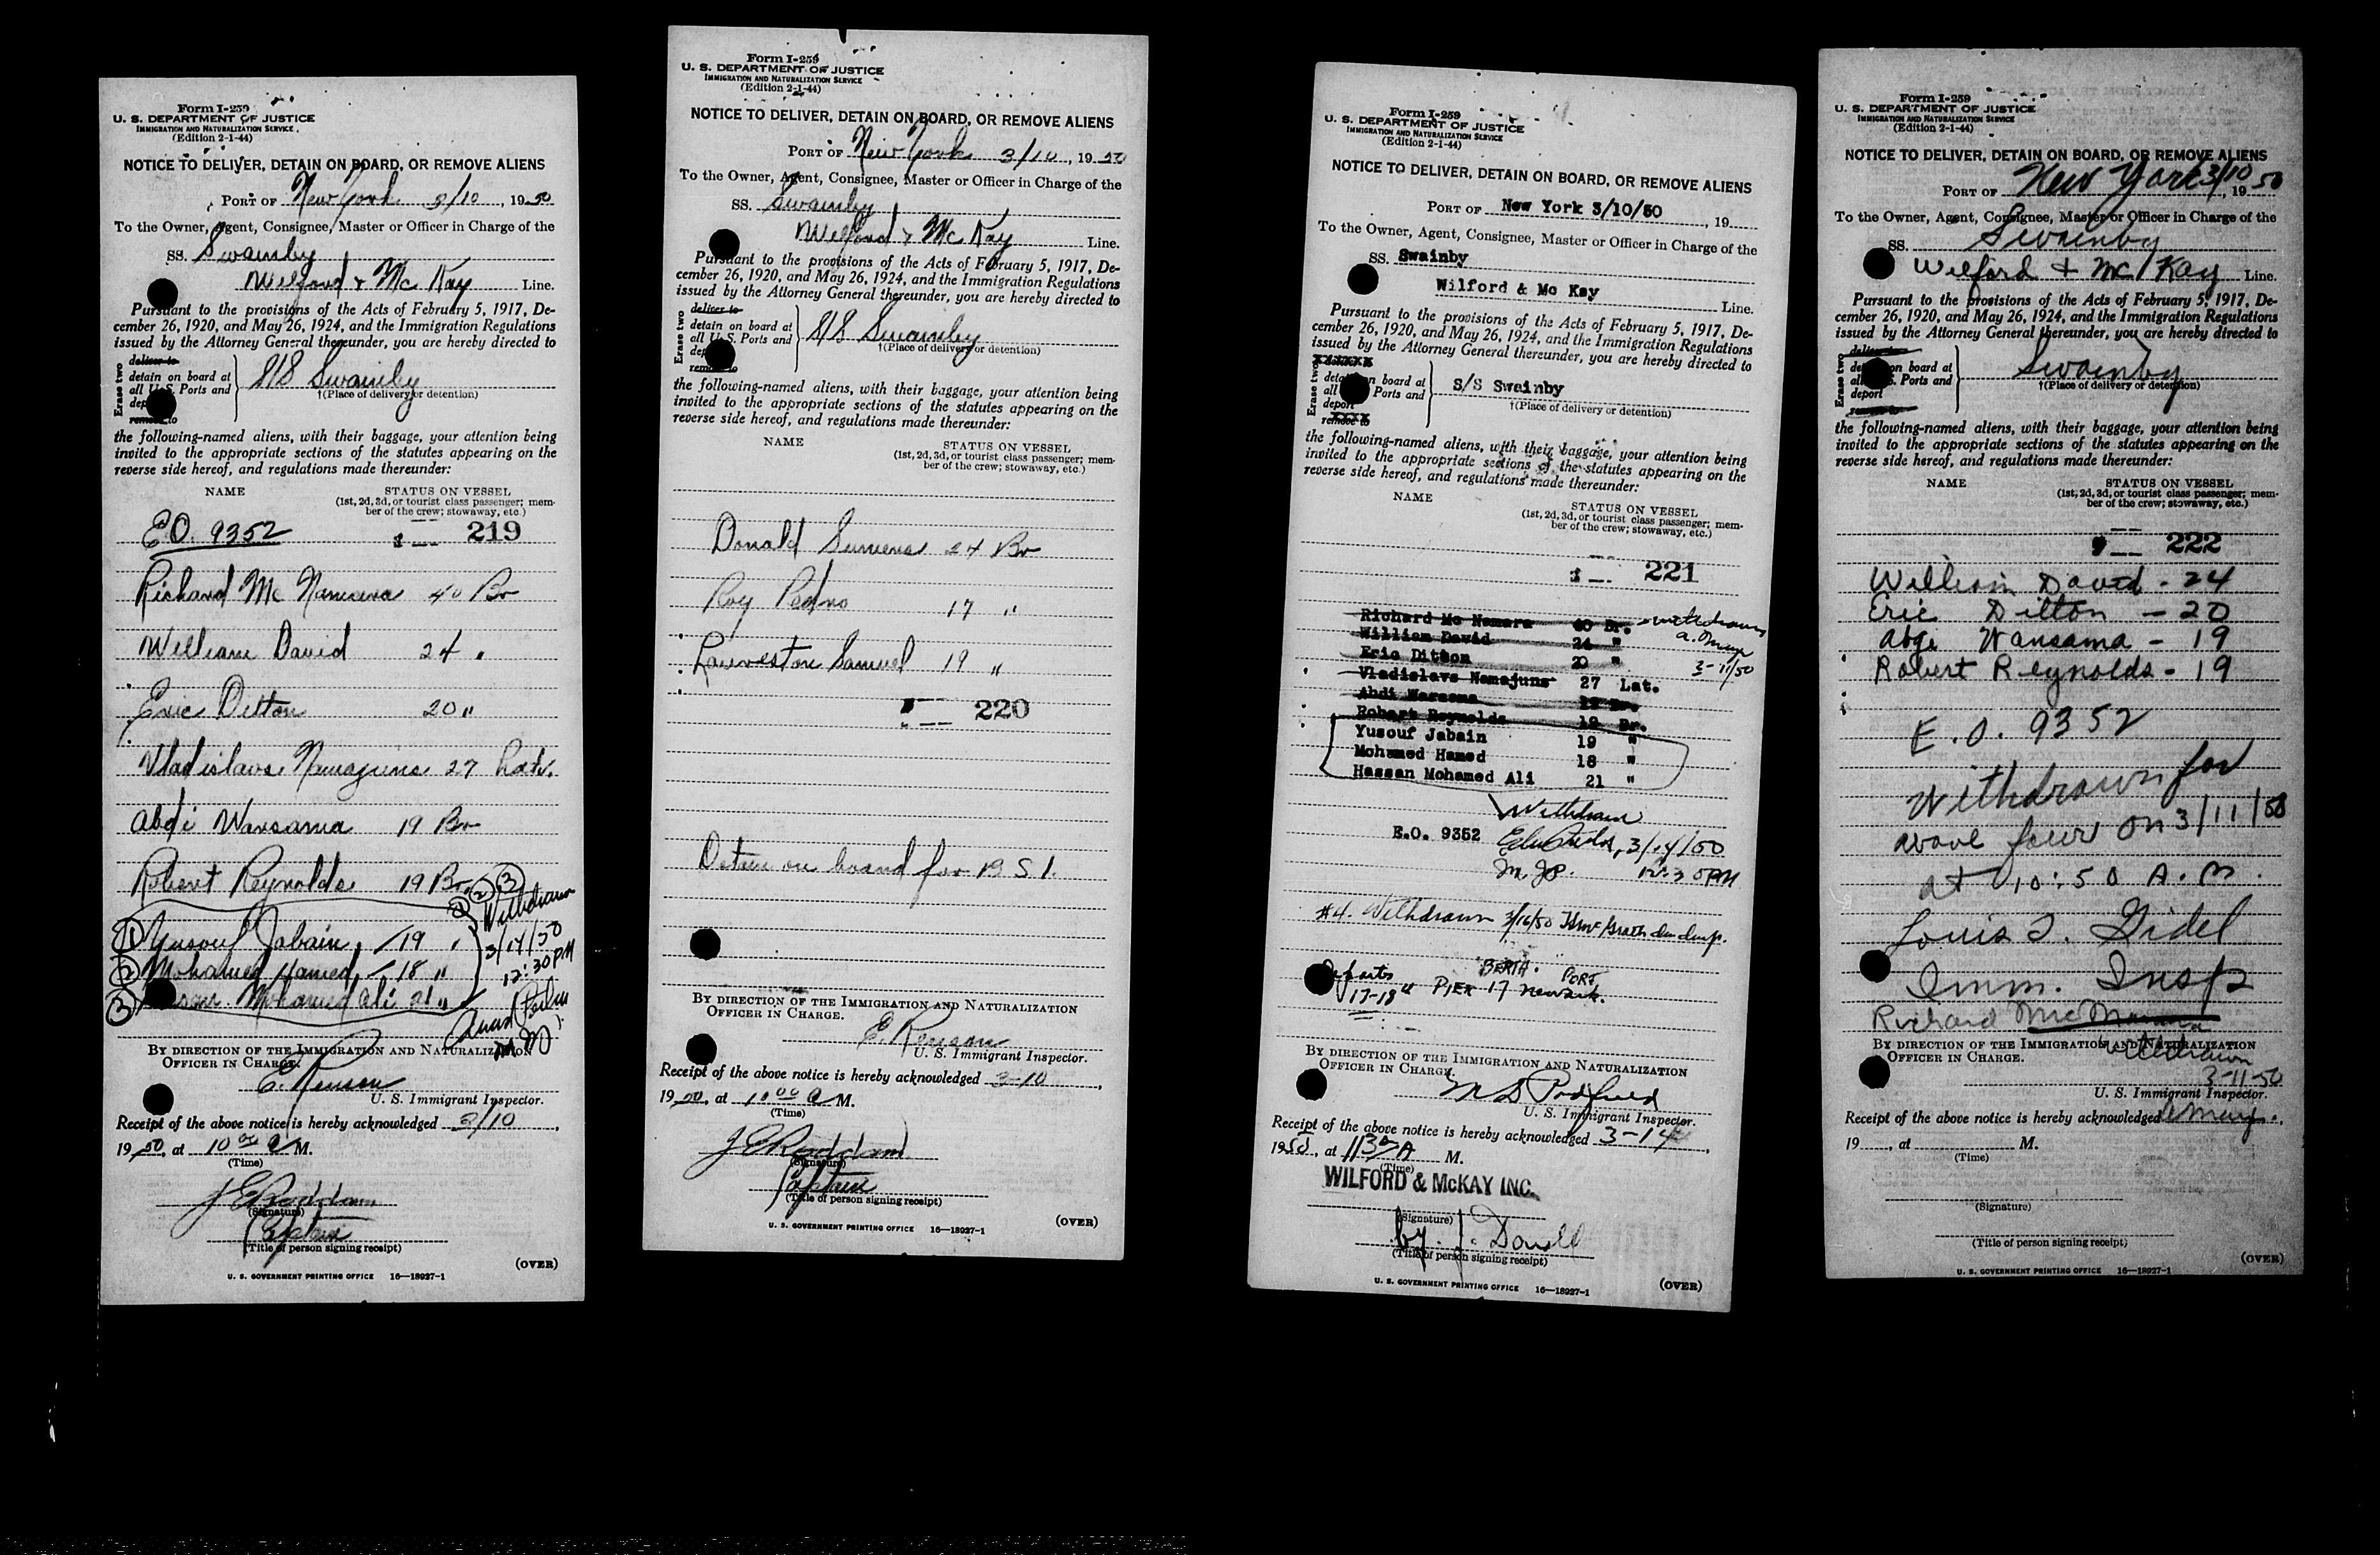 Form I-259
U. S. DEPARTMENT OF JUSTICE
IMMIGRATION AND NATURALIZATION SERVICE
(Edition 2-1-44)
NOTICE TO DELIVER, DETAIN ON BOARD, OR REMOVE ALIENS
PORT OF New York 3/10, 1950
To the Owner, Agent, Consignee, Master or Officer in Charge of the
SS. Swainby
Wilford & Mc Kay Line.
Pursuant to the provisions of the Acts of February 5, 1917, De-
cember 26, 1920, and May 26, 1924, and the Immigration Regulations
issued by the Attorney General thereunder, you are hereby directed to
Erase two
deliver to
detain on board at
all U. S. Ports and
S/S Swainby
†(Place of delivery or detention)
remove to
the following-named aliens, with their baggage, your attention being
invited to the appropriate sections of the statutes appearing on the
reverse side hereof, and regulations made thereunder:
NAME STATUS ON VESSEL
(1st, 2d, 3d, or tourist class passenger; mem-
ber of the crew; stowaway, etc.)
E.O. 9352 219
Richard Mc Namara 40 Br
William David 24 "
Eric Ditton 20 "
Vladislavs Namajuns 27 Latv.
Abdi Warsama 19 Br
Robert Reynolds 19 Br.
① ② ③
Withdrawn
① Yusouf Jabain, 19 "
3/14/50
② Mohamed Hamed, 18 "
12:30 PM
③ Mohamed Ali 21 "
BY DIRECTION OF THE IMMIGRATION AND NATURALIZATION
OFFICER IN CHARGE.
E. Renson
U. S. Immigrant Inspector.
Receipt of the above notice is hereby acknowledged 3/10,
1950, at 10 00 A M.
(Time)
J E Roddam
(Signature)
Captain
(Title of person signing receipt)
(OVER)
U. S. GOVERNMENT PRINTING OFFICE 16—18927-1
Form I-259
U. S. DEPARTMENT OF JUSTICE
IMMIGRATION AND NATURALIZATION SERVICE
(Edition 2-1-44)
NOTICE TO DELIVER, DETAIN ON BOARD, OR REMOVE ALIENS
PORT OF New York 3/10, 1950
To the Owner, Agent, Consignee, Master or Officer in Charge of the
SS. Swainby
Wilford & Mc Kay Line.
Pursuant to the provisions of the Acts of February 5, 1917, De-
cember 26, 1920, and May 26, 1924, and the Immigration Regulations
issued by the Attorney General thereunder, you are hereby directed to
Erase two
deliver to
detain on board at
all U. S. Ports and
S/S Swainby
†(Place of delivery or detention)
remove to
the following-named aliens, with their baggage, your attention being
invited to the appropriate sections of the statutes appearing on the
reverse side hereof, and regulations made thereunder:
NAME STATUS ON VESSEL
(1st, 2d, 3d, or tourist class passenger; mem-
ber of the crew; stowaway, etc.)
Donald 24 Br
Roy Pedro 17 "
Samuel 19 "
220
Detain on board for B S I.
BY DIRECTION OF THE IMMIGRATION AND NATURALIZATION
OFFICER IN CHARGE.
E. Renson
U. S. Immigrant Inspector.
Receipt of the above notice is hereby acknowledged 3-10,
1950, at 10 00 A M.
(Time)
J E Roddam
(Signature)
Captain
(Title of person signing receipt)
(OVER)
U. S. GOVERNMENT PRINTING OFFICE 16—18927-1
Form I-259
U. S. DEPARTMENT OF JUSTICE
IMMIGRATION AND NATURALIZATION SERVICE
(Edition 2-1-44)
NOTICE TO DELIVER, DETAIN ON BOARD, OR REMOVE ALIENS
PORT OF New York 3/10/50, 19
To the Owner, Agent, Consignee, Master or Officer in Charge of the
SS. Swainby
Wilford & Mc Kay Line.
Pursuant to the provisions of the Acts of February 5, 1917, De-
cember 26, 1920, and May 26, 1924, and the Immigration Regulations
issued by the Attorney General thereunder, you are hereby directed to
Erase two
detain on board at
all Ports and
deport
S/S Swainby
†(Place of delivery or detention)
remove to
the following-named aliens, with their baggage, your attention being
invited to the appropriate sections of the statutes appearing on the
reverse side hereof, and regulations made thereunder:
NAME
STATUS ON VESSEL
(1st, 2d, 3d, or tourist class passenger; mem-
ber of the crew; stowaway, etc.)
221
Richard Mc Namara 40 Br. - withdrawn
William David 24 "
Eric Ditton 20 " 3-11/50
Vladislavs Namajuns 27 Lat.
Abdi Warsama 19 Br.
Robert Reynolds 19 Br.
Yusouf Jabain 19 "
Mohamed Hamed 18 "
Hassan Mohamed Ali 21 "
Withdrawn
E.O. 9352 3/14/50
12:30 PM
#4. Withdrawn 3/16/50
Departs BERTH. PORT
17-18" PIER 17 Newark.
BY DIRECTION OF THE IMMIGRATION AND NATURALIZATION
OFFICER IN CHARGE.
U. S. Immigrant Inspector.
Receipt of the above notice is hereby acknowledged 3-14
1950, at 1130 A M.
(Time)
WILFORD & McKAY INC.
(Signature)
by J. Dowell
(Title of person signing receipt)
U. S. GOVERNMENT PRINTING OFFICE 16—18927-1
(OVER)
Form I-259
U. S. DEPARTMENT OF JUSTICE
IMMIGRATION AND NATURALIZATION SERVICE
(Edition 2-1-44)
NOTICE TO DELIVER, DETAIN ON BOARD, OR REMOVE ALIENS
PORT OF New York 3/10 1950
To the Owner, Agent, Consignee, Master or Officer in Charge of the
SS. Swainby
Wilford & Mc Kay Line.
Pursuant to the provisions of the Acts of February 5, 1917, De-
cember 26, 1920, and May 26, 1924, and the Immigration Regulations
issued by the Attorney General thereunder, you are hereby directed to
Erase two
deliver to
on board at
S. Ports and
deport
Swainby
†(Place of delivery or detention)
remove to
the following-named aliens, with their baggage, your attention being
invited to the appropriate sections of the statutes appearing on the
reverse side hereof, and regulations made thereunder:
NAME STATUS ON VESSEL
(1st, 2d, 3d, or tourist class passenger; mem-
ber of the crew; stowaway, etc.)
222
William David - 24
Eric Ditton - 20
Abge Wansama - 19
Robert Reynolds - 19
E.O. 9352
Withdrawn for
above four on 3/11/50
at 10:50 A.M.
Louis J. Gidel
Imm. Insp
Richard Mc Namara
withdrawn
BY DIRECTION OF THE IMMIGRATION AND NATURALIZATION
OFFICER IN CHARGE.
3-11-50
U. S. Immigrant Inspector.
Receipt of the above notice is hereby acknowledged
19, at M.
(Time)
(Signature)
(Title of person signing receipt)
(OVER)
U. S. GOVERNMENT PRINTING OFFICE 16—18927-1